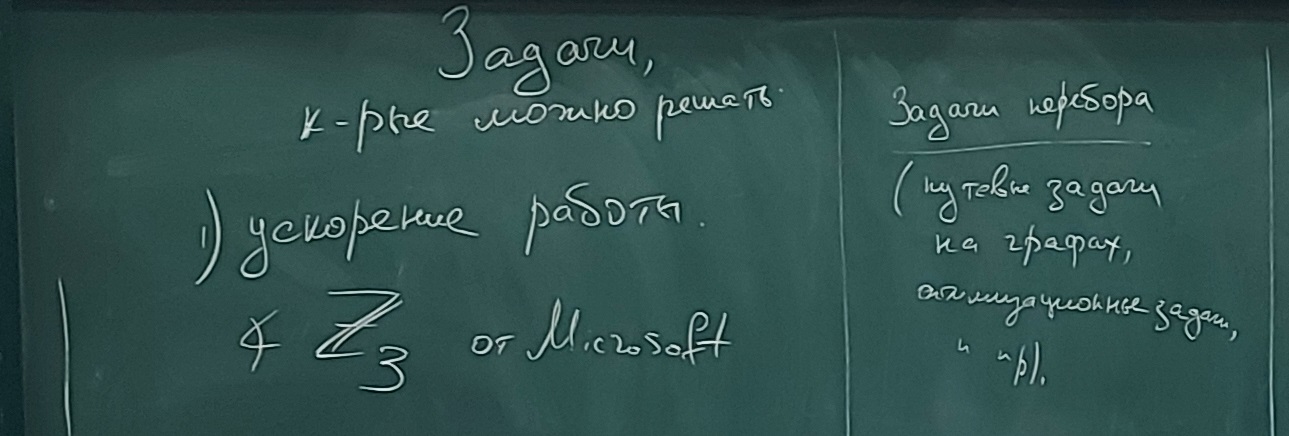 Задачи,
к-рые можно решать
1) ускорение работы.
∢ ℤ3 от Microsoft
Задачи перебора
(путевые задачи
на графах,
оптимизационные задачи,
и пр).